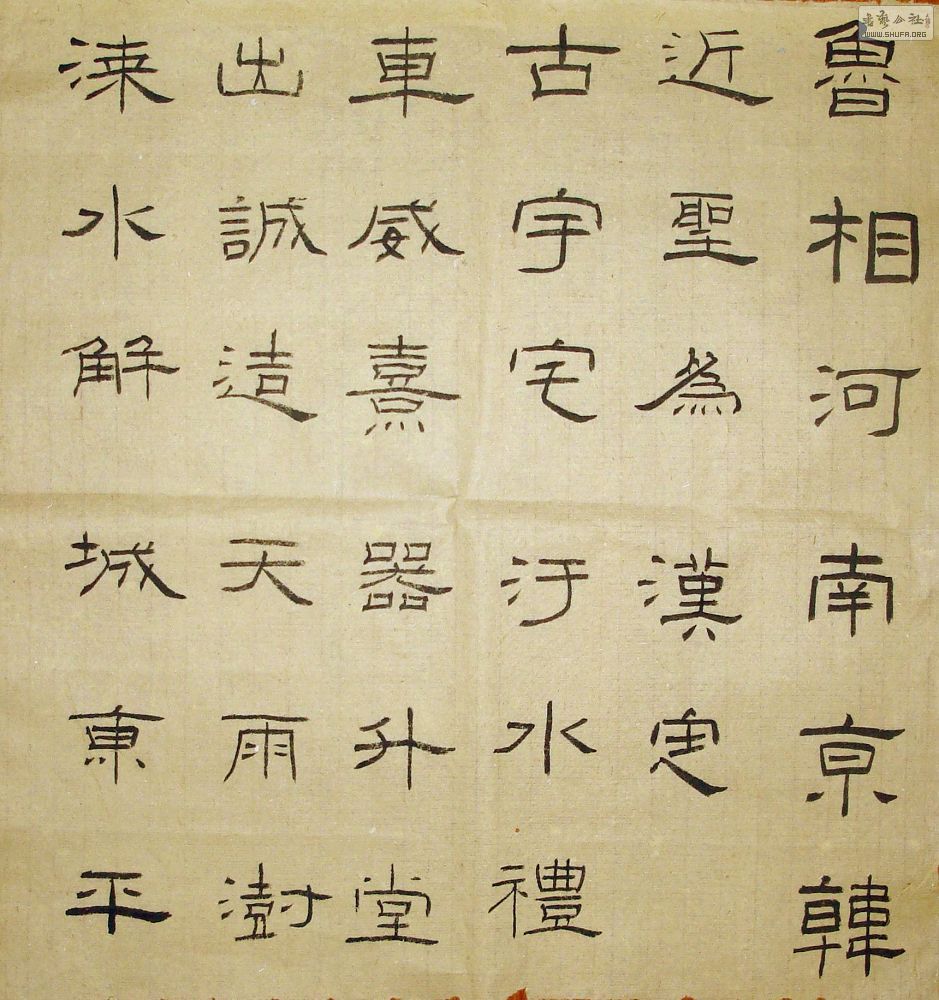 魯相河南京韓
近聖為漢定
古宇宅汙水禮
車威熹器升堂
出誠造天雨澍
涑水解城東平
書藝公社
WWW.SHUFA.ORG